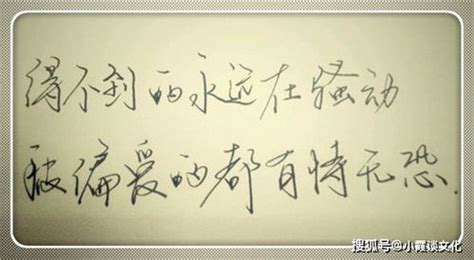 得不到的永远在骚动
被偏爱的都有恃无恐.
搜狐号@小霞谈文化